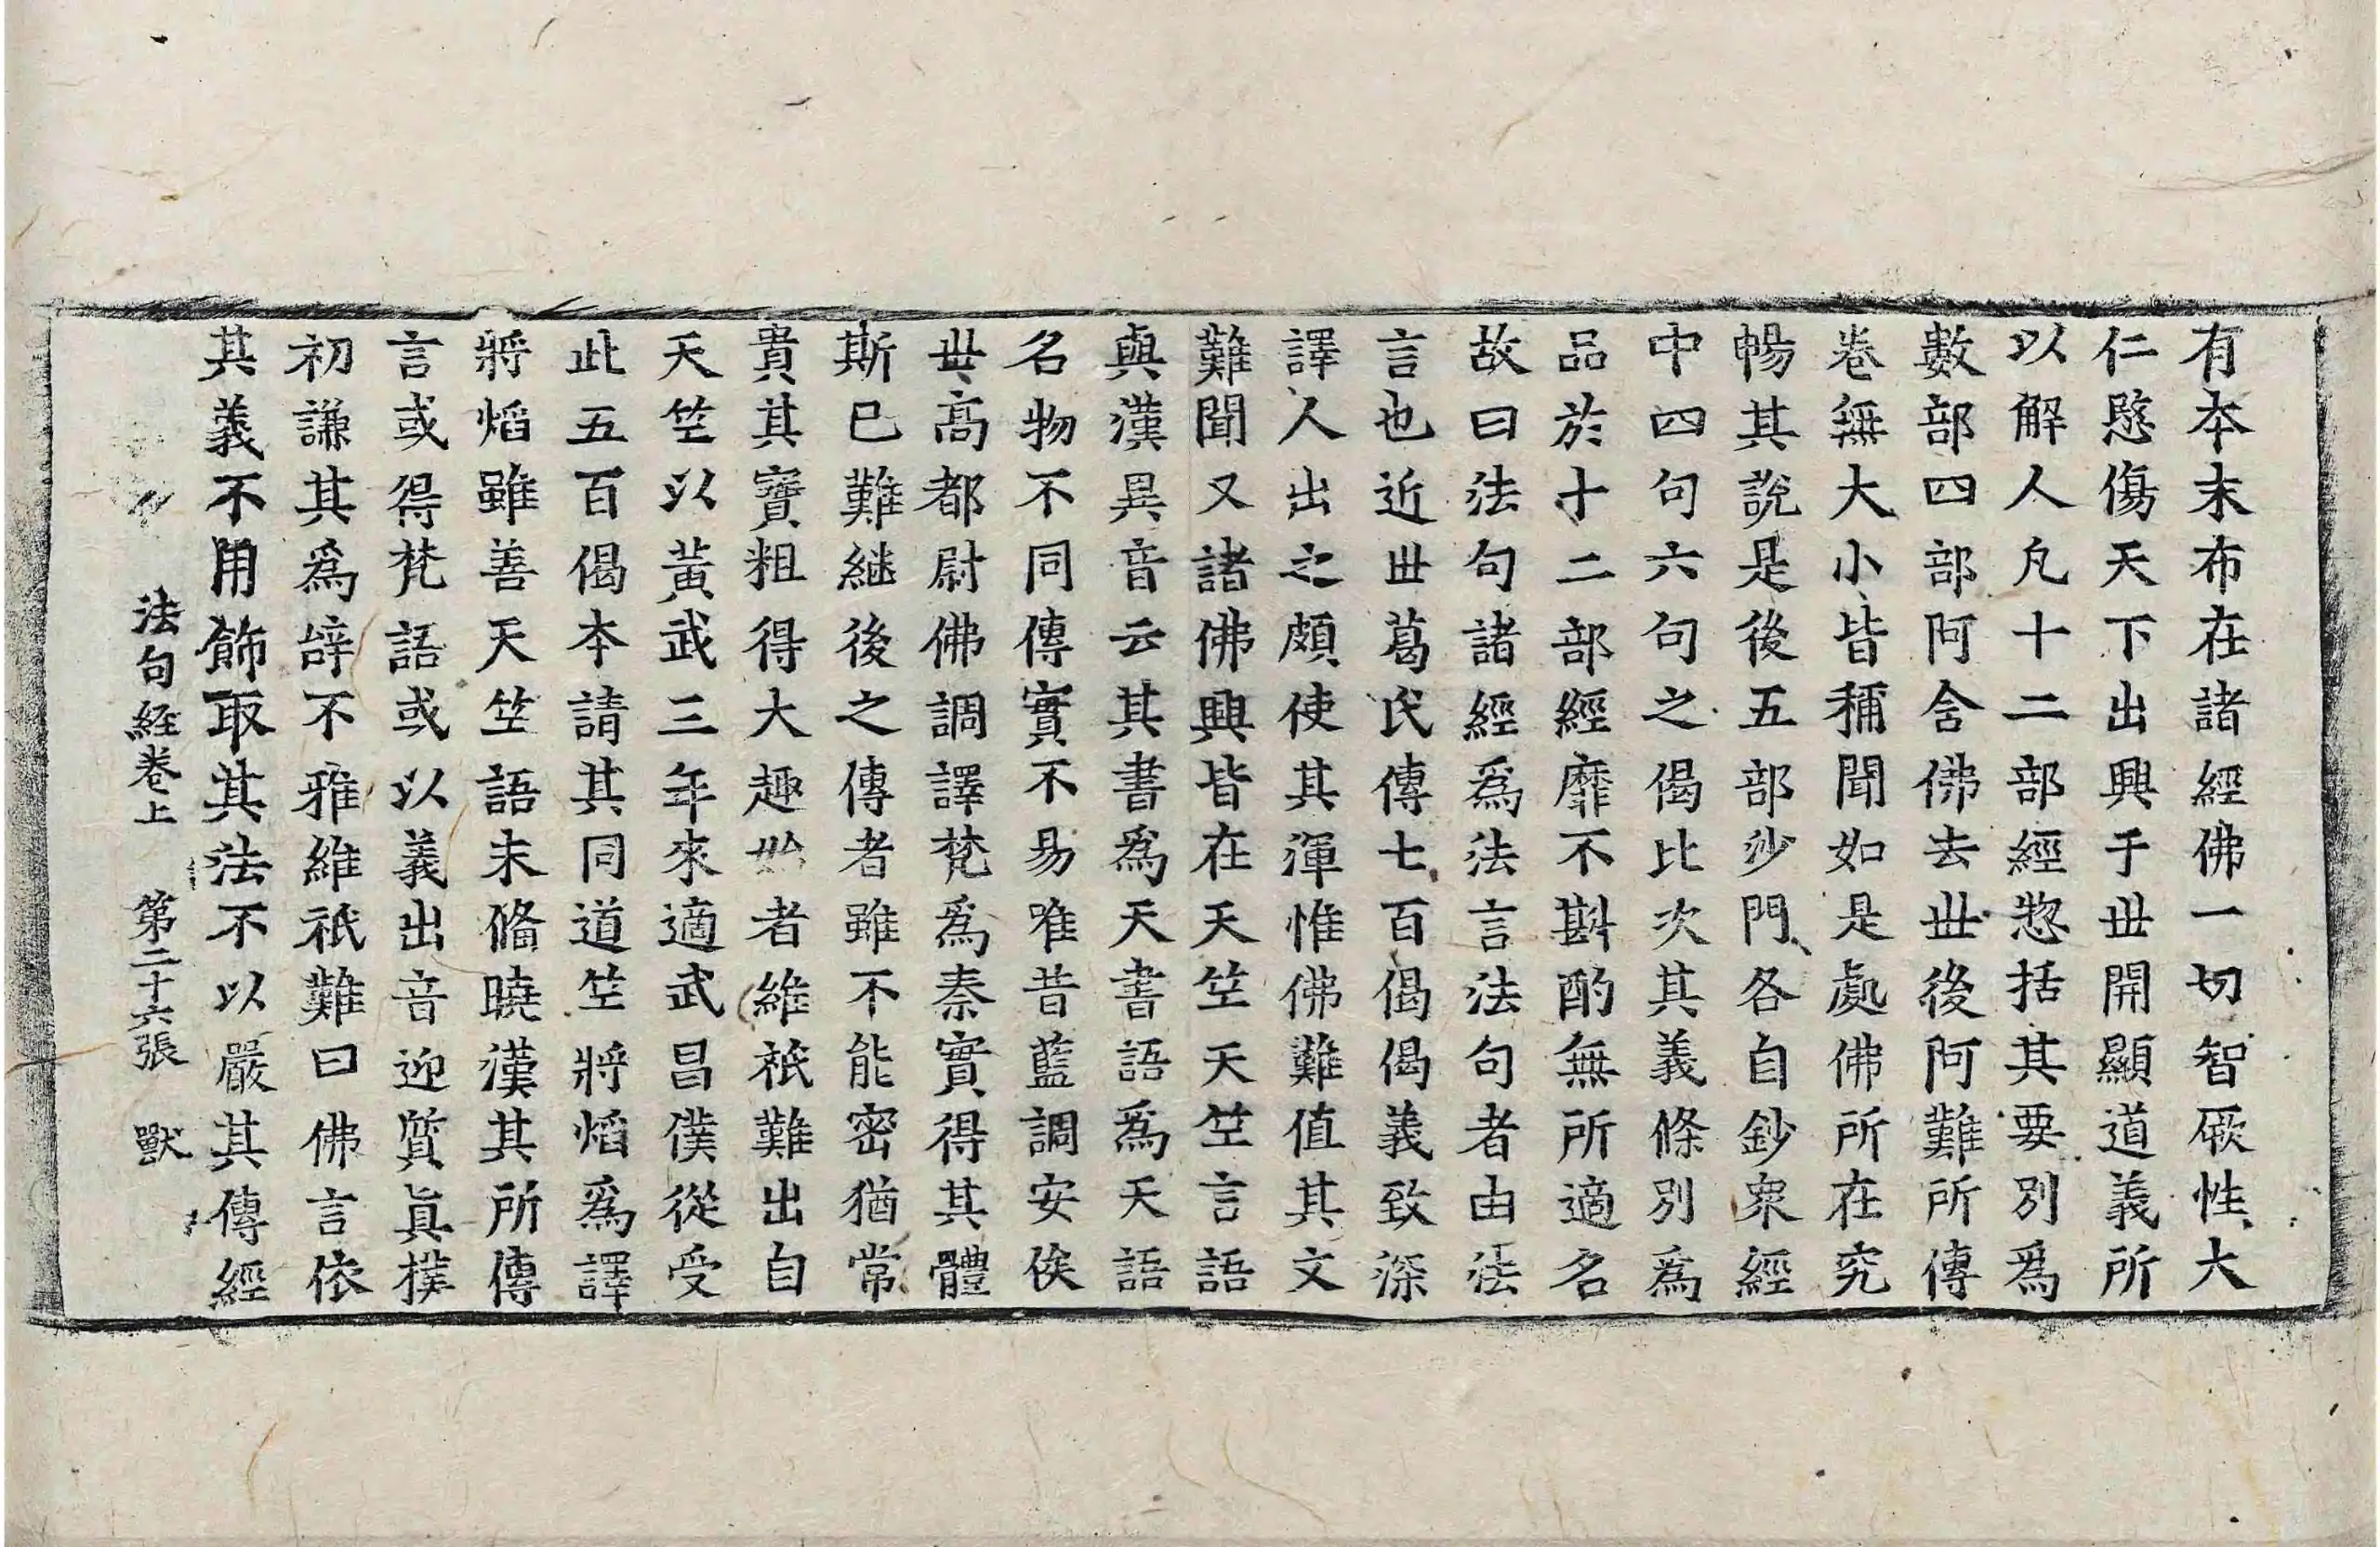 有本末布在諸經佛一切智厥性大
仁愍傷天下出興于世開顯道義所
以解人凡十二部經惣括其要別爲
數部四部阿含佛去世後阿難所傳
卷無大小皆稱聞如是處佛所在究
暢其說是後五部沙門各自鈔衆經
中四句六句之偈比次其義條別爲
品於十二部經靡不斟酌無所適名
故曰法句諸經爲法言法句者由法
言也近世葛氏傳七百偈偈義致深
譯人出之頗使其渾惟佛難值其文
難聞又諸佛興皆在天竺天竺言語
與漢異音云其書爲天書語爲天語
名物不同傳實不易唯昔藍調安侯
世高都尉佛調譯梵爲秦實得其體
斯已難継後之傳者雖不能密猶常
貴其寶粗得大趣始者維祇難出自
天竺以黃武三年來適武昌僕從受
此五百偈本請其同道竺將焰爲譯
將焰雖善天竺語未備曉漢其所傳
言或得梵語或以義出音迎質眞樸
初謙其爲辝不雅維祇難曰佛言依
其義不用飾取其法不以嚴其傳經
法句経卷上 第二十六張 獸